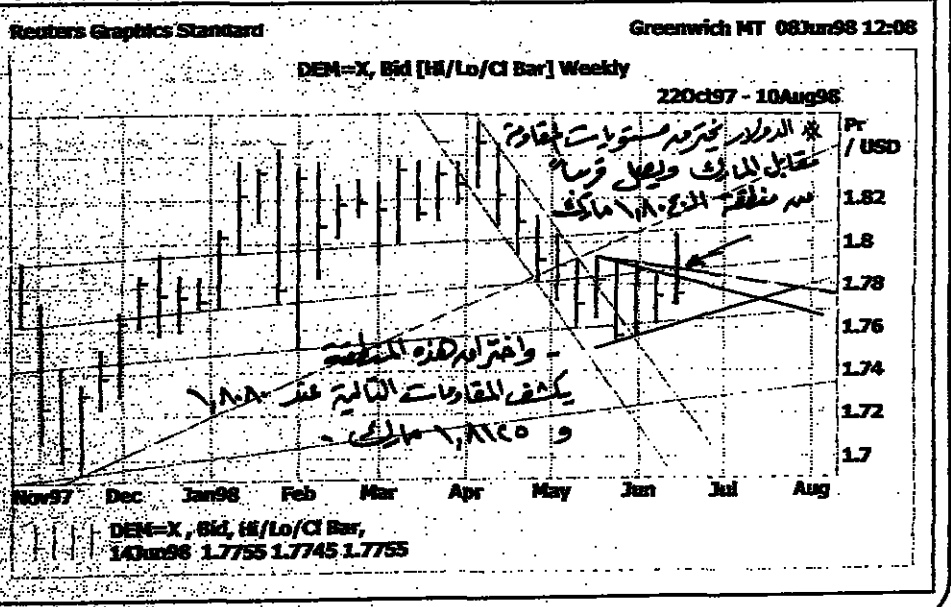 Reuters Graphics Standard
Greenwich MT 08Jun98 12:08
DEM=X, Bid [Hi/Lo/Cl Bar] Weekly
22Oct97 - 10Aug98
Pr
/ USD
* الدولار يخترق مستويات مقاومة
مقابل المارك ويصل قريباً
من منطقة الـ ١,٨٠٤٠ مارك
1.82
1.8
1.78
1.76
1.74
1.72
1.7
- واختراق هذه المنطقة
يكشف المقاومات التالية عند ١,٨٠٨٠
و ١,٨١٢٥ مارك -
Nov97 Dec Jan98 Feb Mar Apr May Jun Jul Aug
DEM=X , Bid, Hi/Lo/Cl Bar,
14Jun98 1.7755 1.7745 1.7755